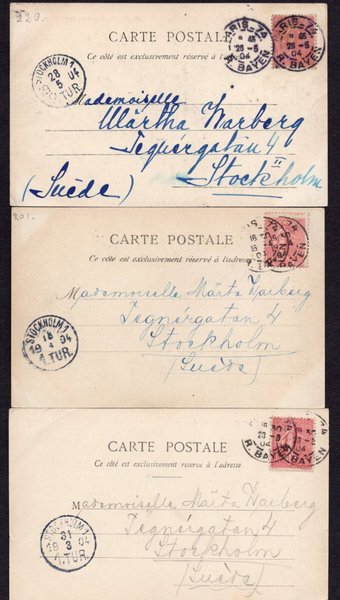 220.
CARTE POSTALE
Ce côté est exclusivement réservé à l'adresse
PARIS-74
28-5
04
R. BAYEN
PARIS-74
28-5
04
R. BAYEN
STOCKHOLM 1
28
5
19 04
1. TUR.
Mademoiselle
Märtha Warberg
Tegnérgatan 4
Stockholm
(Suède)
201.
CARTE POSTALE
Ce côté est exclusivement réservé à l'adresse
74
04
BAYEN
STOCKHOLM 1
18
4
19 04
1. TUR.
Mademoiselle Märta Warberg
Tegnérgatan 4
Stockholm
(Suède)
CARTE POSTALE
Ce côté est exclusivement réservé à l'adresse
04
R. BAYEN
74
04
BAYEN
STOCKHOLM 1
31
3
19 04
1. TUR.
Mademoiselle Märta Warberg
Tegnérgatan 4
Stockholm
(Suède)